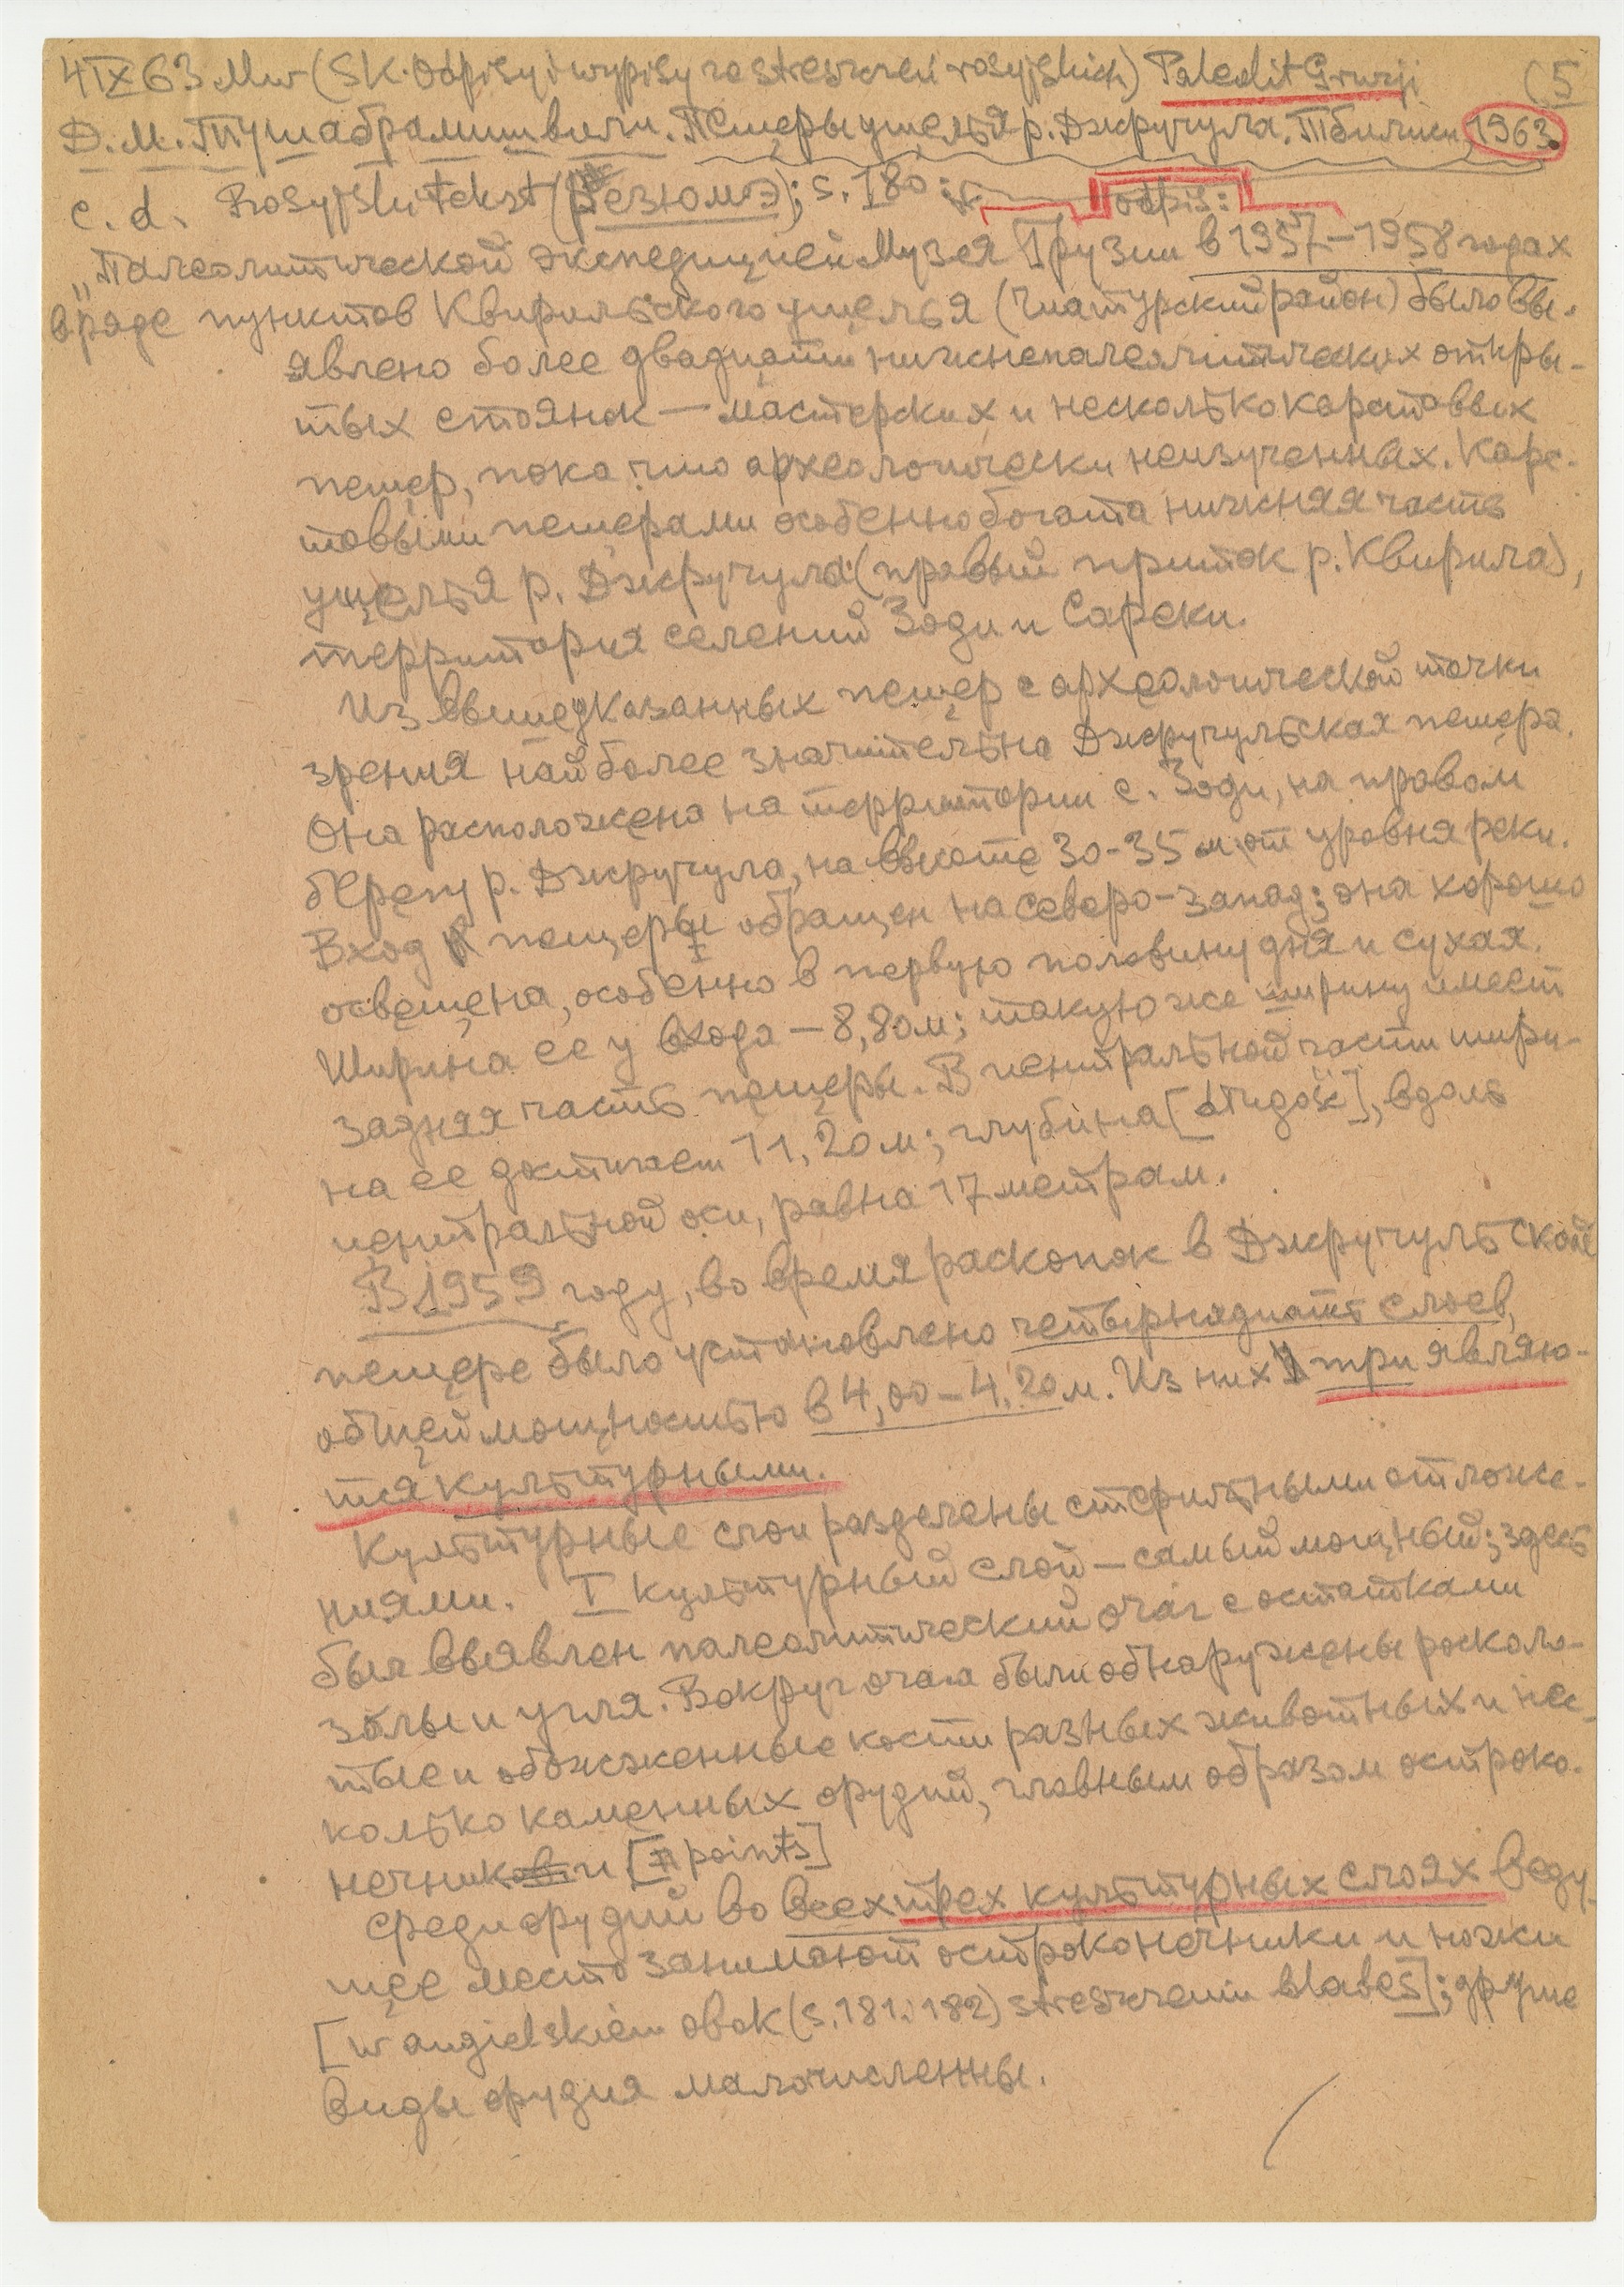 4 IX 63 Mw (SK. Odpisy i wypisy ze streszczeń rosyjskich) Paleolit Gruzji (5
Д.М. Тушабрамишвили. Пещеры ущелья р. Джручула. Тбилиси, 1963.
c.d. Rosyjski tekst (Резюмэ); s. 180: odpis:
„Палеолитической экспедицией Музея Грузии в 1957–1958 годах
в ряде пунктов Квирильского ущелья (Чиатурский район) было вы-
явлено более двадцати нижнепалеолитических откры-
тых стоянок — мастерских и несколько карстовых
пещер, пока что археологически неизученных. Карс-
товыми пещерами особенно богата нижняя часть
ущелья р. Джручула (правый приток р. Квирила),
территория селений Зоди и Сареки.
Из вышеуказанных пещер с археологической точки
зрения наиболее значительна Джручульская пещера.
Она расположена на территории с. Зоди, на правом
берегу р. Джручула, на высоте 30-35 м от уровня реки.
Вход пещеры обращен на северо-запад; она хорошо
освещена, особенно в первую половину дня и сухая.
Ширина ее у входа — 8,80 м; такую же ширину имеет
задняя часть пещеры. В центральной части шири-
на ее достигает 11,20 м; глубина [długość], вдоль
центральной оси, равна 17 метрам.
В 1959 году, во время раскопок в Джручульской
пещере было установлено четырнадцать слоев,
общей мощностью в 4,00–4,20 м. Из них три являю-
тся культурными.
Культурные слои разделены стерильными отложе-
ниями. I культурный слой — самый мощный; здесь
был выявлен палеолитический очаг с остатками
золы и угля. Вокруг очага были обнаружены расколо-
тые и обожженные кости разных животных и нес-
колько каменных орудий, главным образом остроко-
нечники [points]
Среди орудий во всех трех культурных слоях веду-
щее место занимают остроконечники и ножи
[w angielskiem obok (s. 181, 182) streszczeniu blabes]; другие
виды орудия малочисленны.